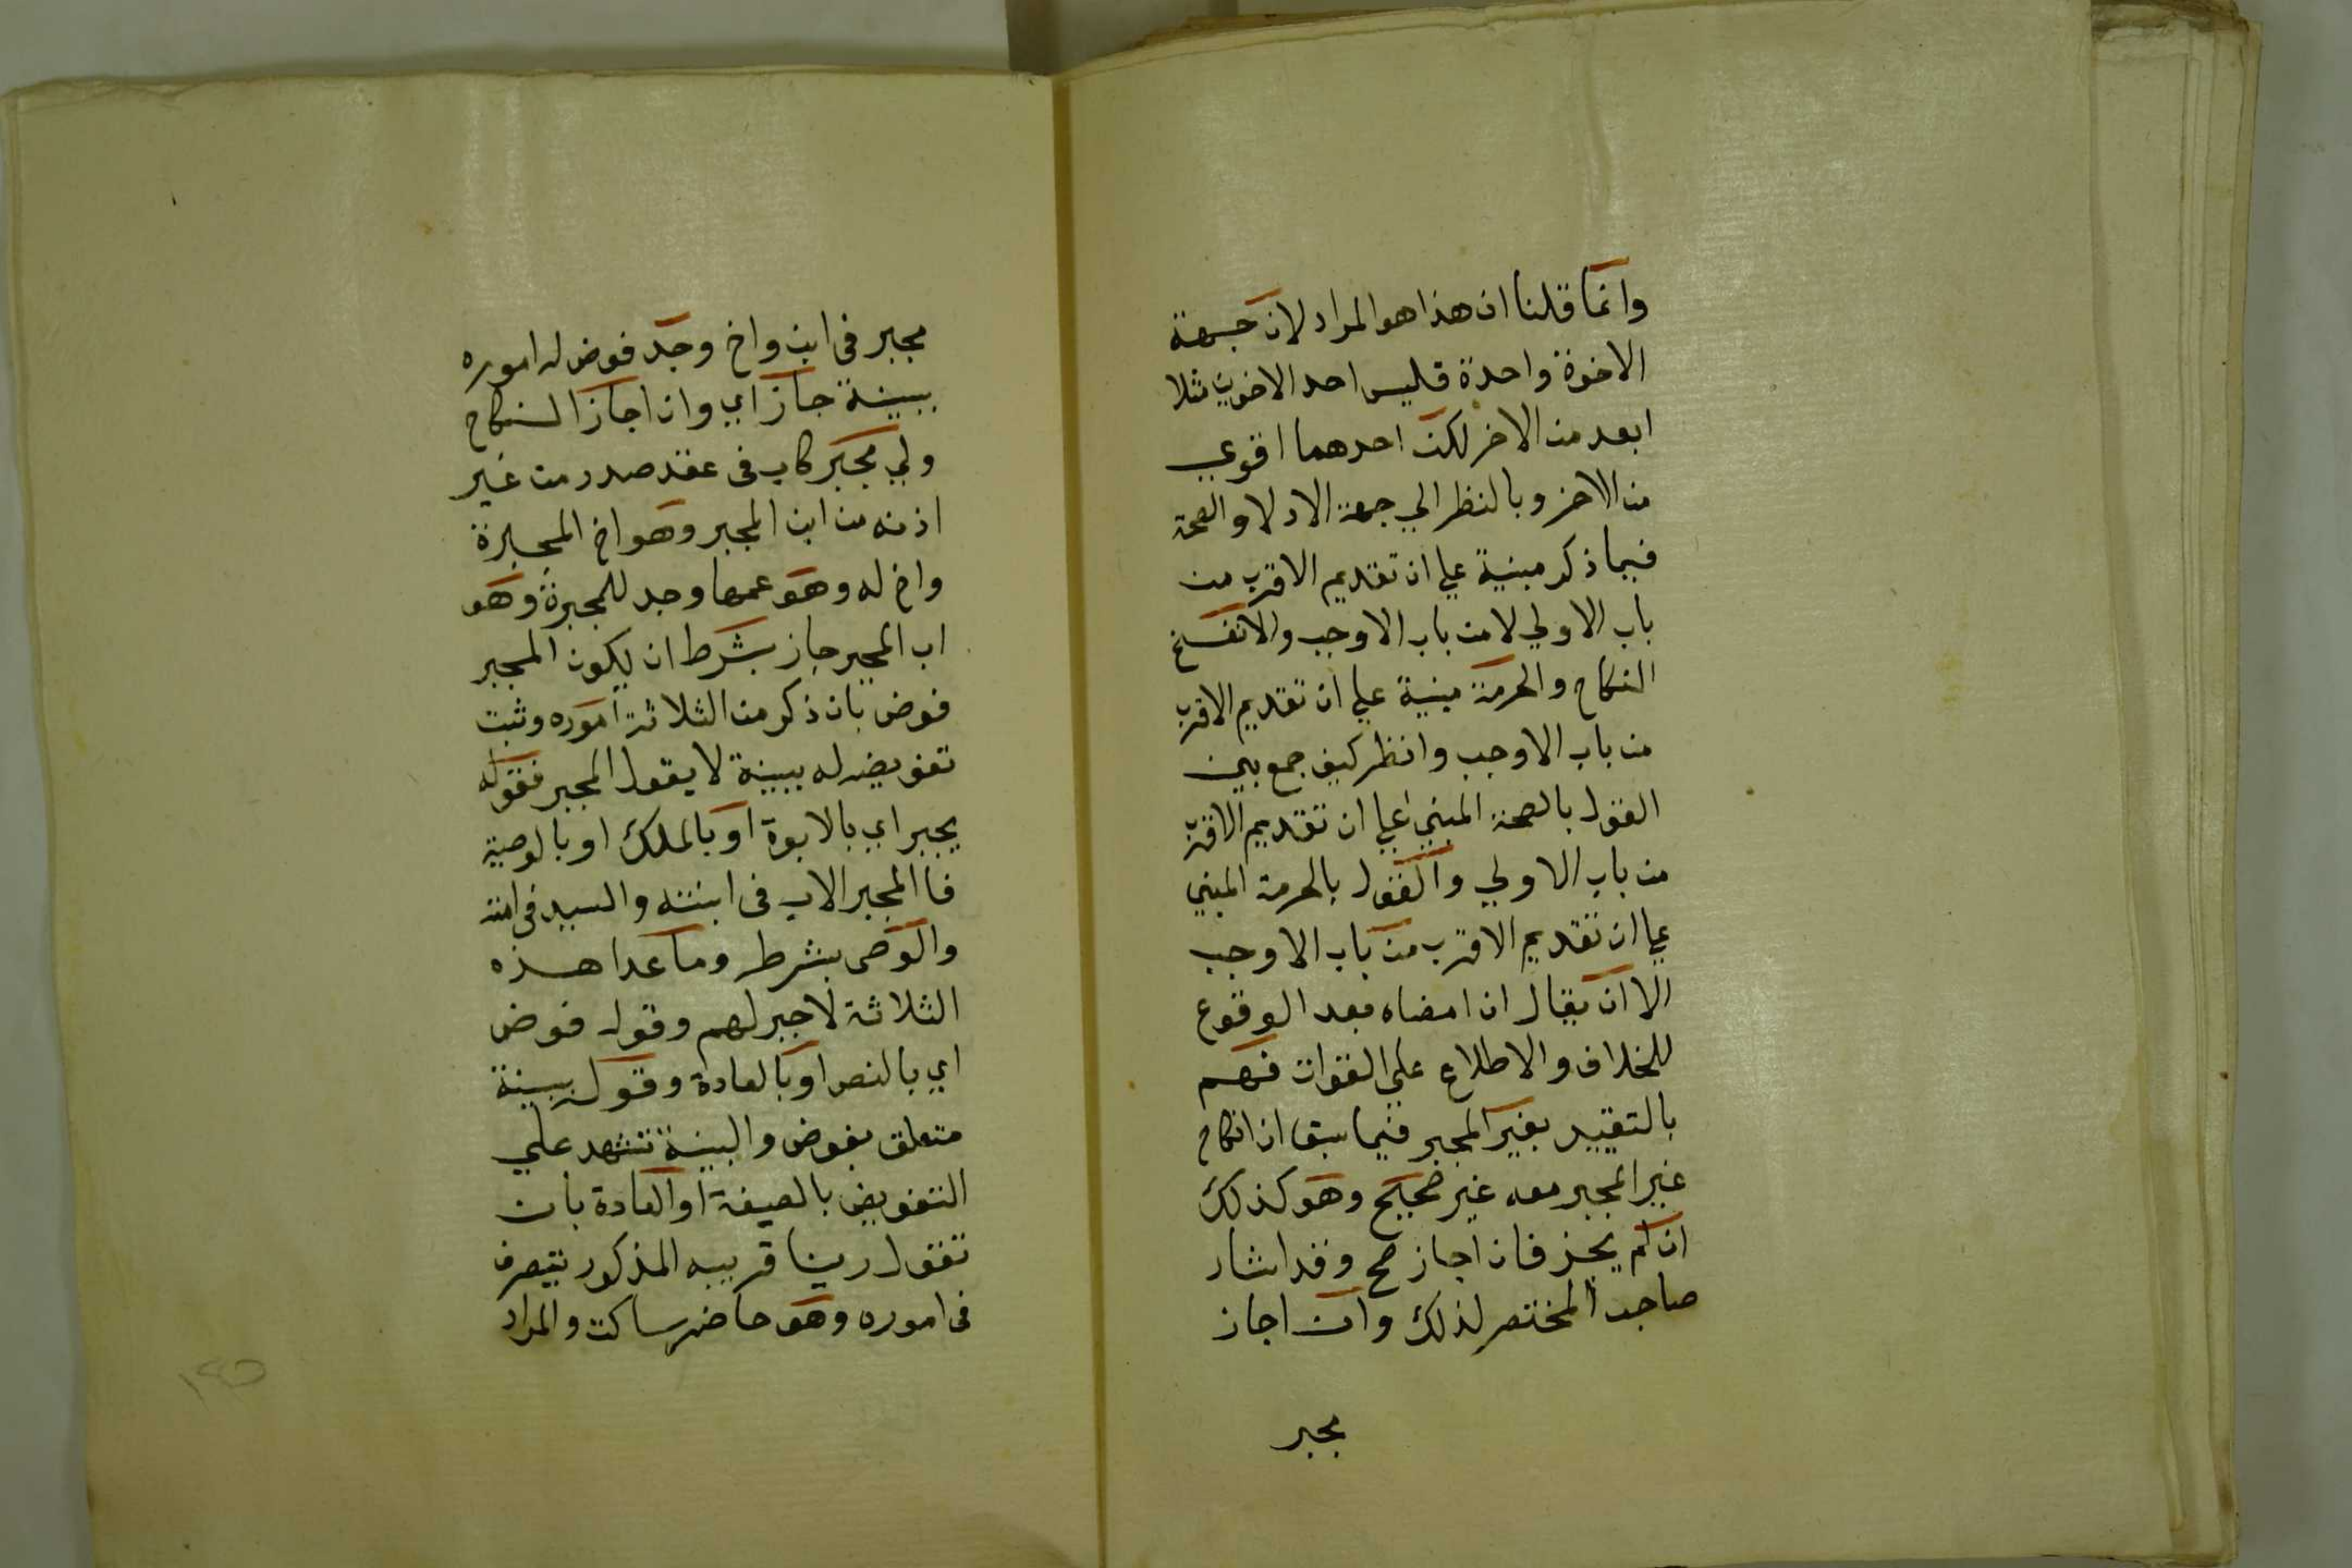 وانما قلنا ان هذا هو المراد لان جهة
الاخوة واحدة فليس احد الاخوين مثلا
ابعد من الاخر لكن احدهما اقوي
من الاخر وبالنظر الي جهة الادلا والصحة
فيما ذكر مبنية علي ان تقديم الاقرب من
باب الاولي لا من باب الاوجب والا تفسخ
النكاح والحرمة مبنية علي ان تقديم الاقرب
من باب الاوجب وانظر كيف جمع بين
القول بالصحة المبني علي ان تقديم الاقرب
من باب الاولي والقول بالحرمة المبني
علي ان تقديم الاقرب من باب الاوجب
الا ان يقال ان امضاه بعد الوقوع
للخلاف والاطلاع علي الفوات فهم
بالتقييد بغير المجبر فيما سبق ان انكاح
غير المجبر معه غير صحيح وهو كذلك
ان لم يجز فان اجاز صح وقد اشار
صاحب المختصر لذلك وان اجاز
مجبر
مجبر في ابن واخ وجد فوض له اموره
ببينة جاز اي وان اجاز النكاح
ولي مجبر كاب في عقد صدر من غير
اذنه من ابن المجبر وهو اخ المجبرة
واخ له وهو عمها وجد للمجبرة وهو
اب المجبر جاز بشرط ان يكون المجبر
فوض بان ذكر من الثلاثة اموره وثبت
تفويضه له ببينة لا بقول المجبر فقوله
يجبر اي بالابوة او بالملك او بالوصية
فاالمجبر الاب في ابنته والسيد في امته
والوصي بشرطه وما عدا هذه
الثلاثة لا جبر لهم وقوله فوض
اي بالنص او بالعادة وقوله ببينة
متعلق بفوض والبينة تشهد علي
التفويض بالصيغة او العادة بان
تقول رينا قريبه المذكور يتصرف
في اموره وهو حاضر ساكت والمراد